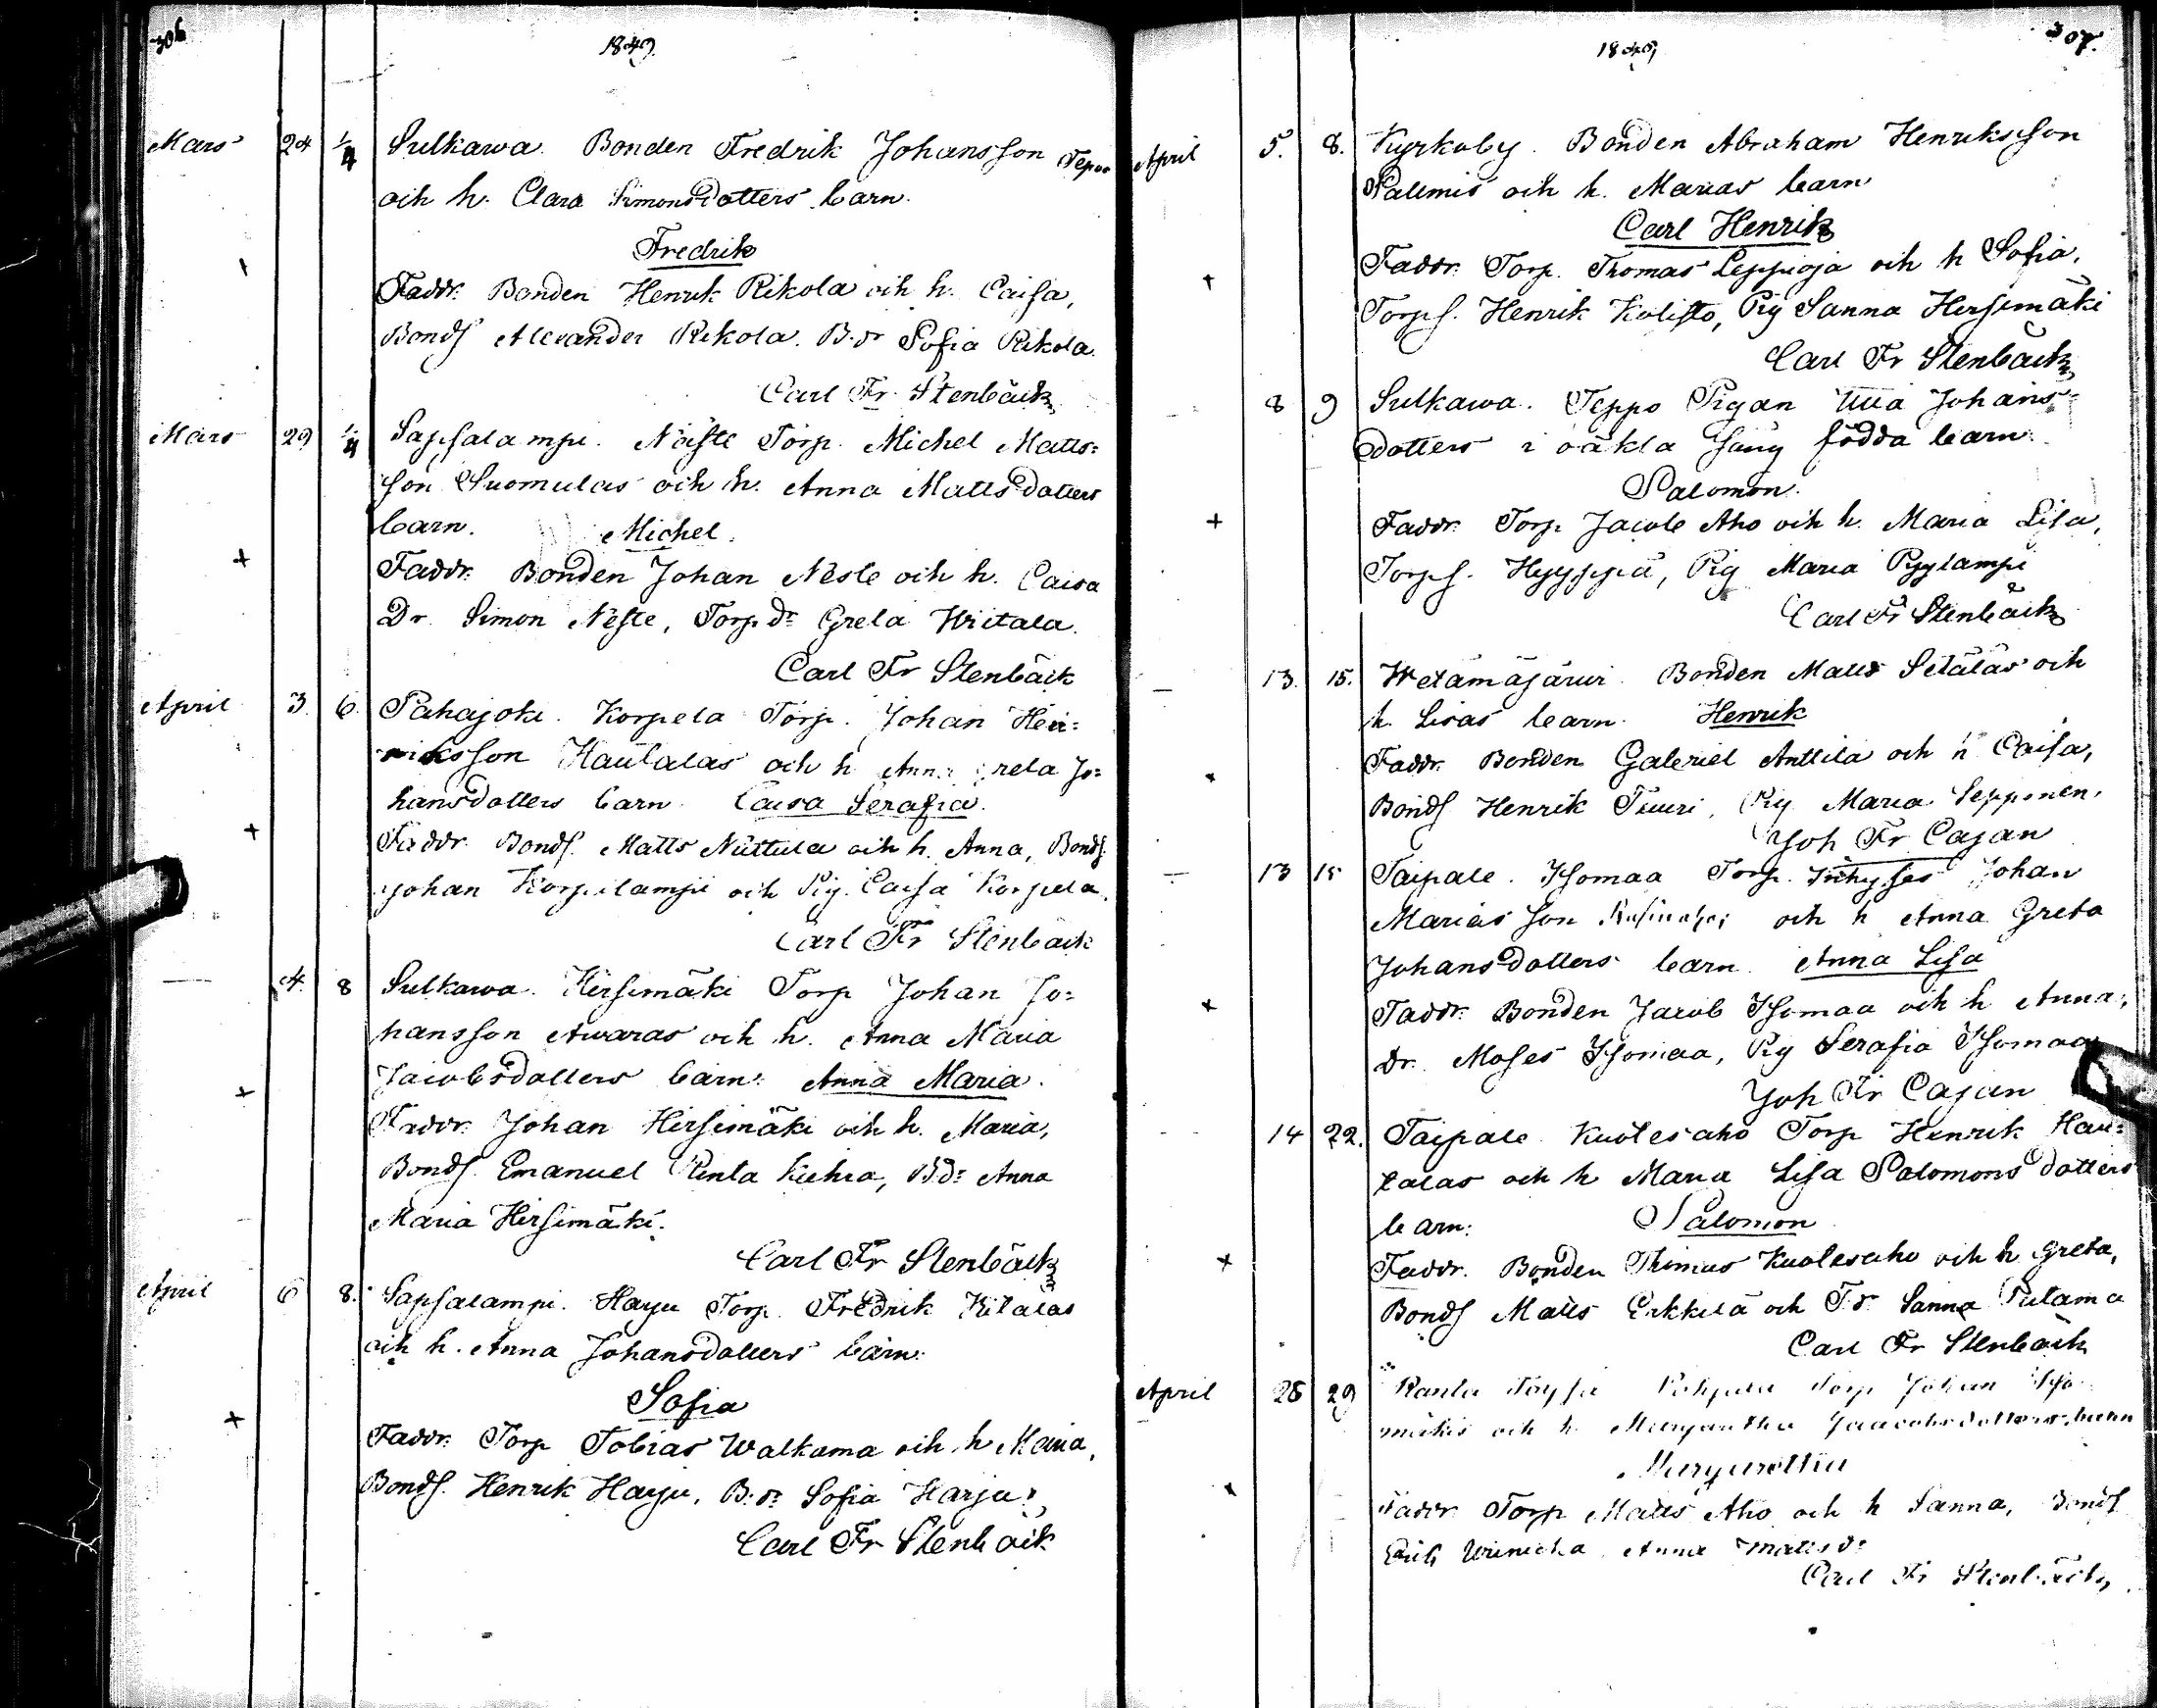 306
1849
Mars 24 1/4 Sulkawa. Bonden Fredrik Johansson Tepos
och h. Clara Simonsdotters barn.
Fredrik
Faddr. Bonden Henrik Rikola och h. Caisa,
Bonds Alexander Rikola. B.dr Sofia Rikola.
Carl Fr. Stenbäck
Mars 29 1/4 Sapsalampi. Näste Torp. Michel Matts=
son Suomulas och h. Anna Mattsdotters
barn. Michel.
Faddr. Bonden Johan Neste och h. Caisa
Dr. Simon Neste, Torp dr Greta Wiitala.
Carl Fr Stenbäck
April 3. 6. Pahajoki. Korpela Torp. Johan Hen=
riksson Hautalas och h Anna Greta Jo=
hansdotters barn. Caisa Serafia.
Faddr. Bonds. Matts Niittula och h. Anna, Bonds.
Johan Korpilampi och Pig. Caisa Korpela.
Carl Fr Stenbäck
4. 8 Sulkawa. Hirsimäki Torp Johan Jo=
hansson Awaras och h. Anna Maria
Jacobsdotters barn: Anna Maria.
Faddr. Johan Hirsimäki och h. Maria,
Bonds. Emanuel Rinta Kiehra, B.dr Anna
Maria Hirsimäki.
Carl Fr Stenbäck
April 6 8. Sapsalampi. Harju Torp. Fredrik Kitalas
och h. Anna Johansdotters barn:
Sofia
Faddr. Torp Tobias Walkama och h Maria,
Bonds. Henrik Harju, B.dr Sofia Harju.
Carl Fr Stenbäck
307.
1849
April 5. 8. Kyrkoby. Bonden Abraham Henriksson
Palemis och h. Marias barn
Carl Henrik
Faddr. Torp. Thomas Leppioja och h Sofia,
Torps. Henrik Kolisto, Pig Sanna Hersimäki
Carl Fr Stenbäck
8 9 Sulkawa. Teppo Pigan Ulla Johans=
dotters i oäkta säng födda barn:
Salomon.
Faddr. Torp Jacob Aho och h. Maria Lisa,
Torps. Hyyppiä, Pig Maria Pyylampi
Carl Fr Stenbäck
13. 15. Wetämäjärwi. Bonden Matts Setäläs och
h. Lisas barn. Henrik
Faddr. Bonden Gabriel Anttila och h Caisa,
Bonds Henrik Tuuri, Pig Maria Sepponen.
Joh Fr Cajan
13 15 Taipale. Isomaa Torp. Inhyses Johan
Mariasson och h Anna Greta
Johansdotters barn. Anna Lisa
Faddr. Bonden Jacob Isomaa och h Anna,
Dr. Moses Isomaa, Pig Serafia Isomaa
Joh Fr Cajan
14 22. Taipale Kuolesaho Torp Henrik Hau=
talas och h Maria Lisa Salomonsdotters
barn: Salomon
Faddr. Bonden Thomas Kuolesaho och h Greta,
Bonds Matts Erkkilä och T.dr Sanna Putama
Carl Fr Stenbäck
April 28 29 Ranta Töysä Torp Johan
mäkis och h. Margaretha Jaacobsdotters barn
Margaretha
Faddr Torp Matts Aho och h Sanna, Bonds
Anna Matts dr
Carl Fr Stenbäck